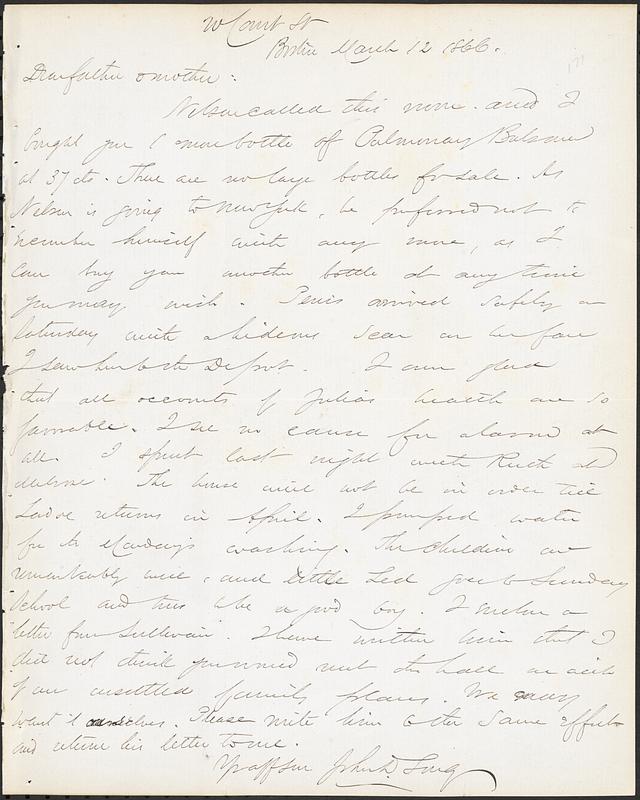 20 Court St
Boston March 12 1866.
Dear father & mother:
Nelson called this morn. and I
bought you 1 more bottle of Pulmonary Balsam
at 37 cts. There are no large bottles for sale. As
Nelson is going to New York, he preferred not to
encumber himself with any more, as I
can buy you another bottle at any time
you may wish. arrived safely on
Saturday with a hideous scar on her face
I saw her to the Depot. I am glad
that all accounts of Julia's health are so
favorable. I see no cause for alarm at
all. I spent last night with Ruth at
Melrose. The house will not be in order till
returns in April. I pumped water
for the Monday's washing. The children are
remarkably well, and little goes to Sunday
School and tries to be a good boy. I enclose a
letter from Sullivan. I have written him that I
did not think you would rent the hall on acct
of our unsettled family plans. We may
want it ourselves. Please write him to the same effect
and return his letter to me.
Yr aff son John D Long